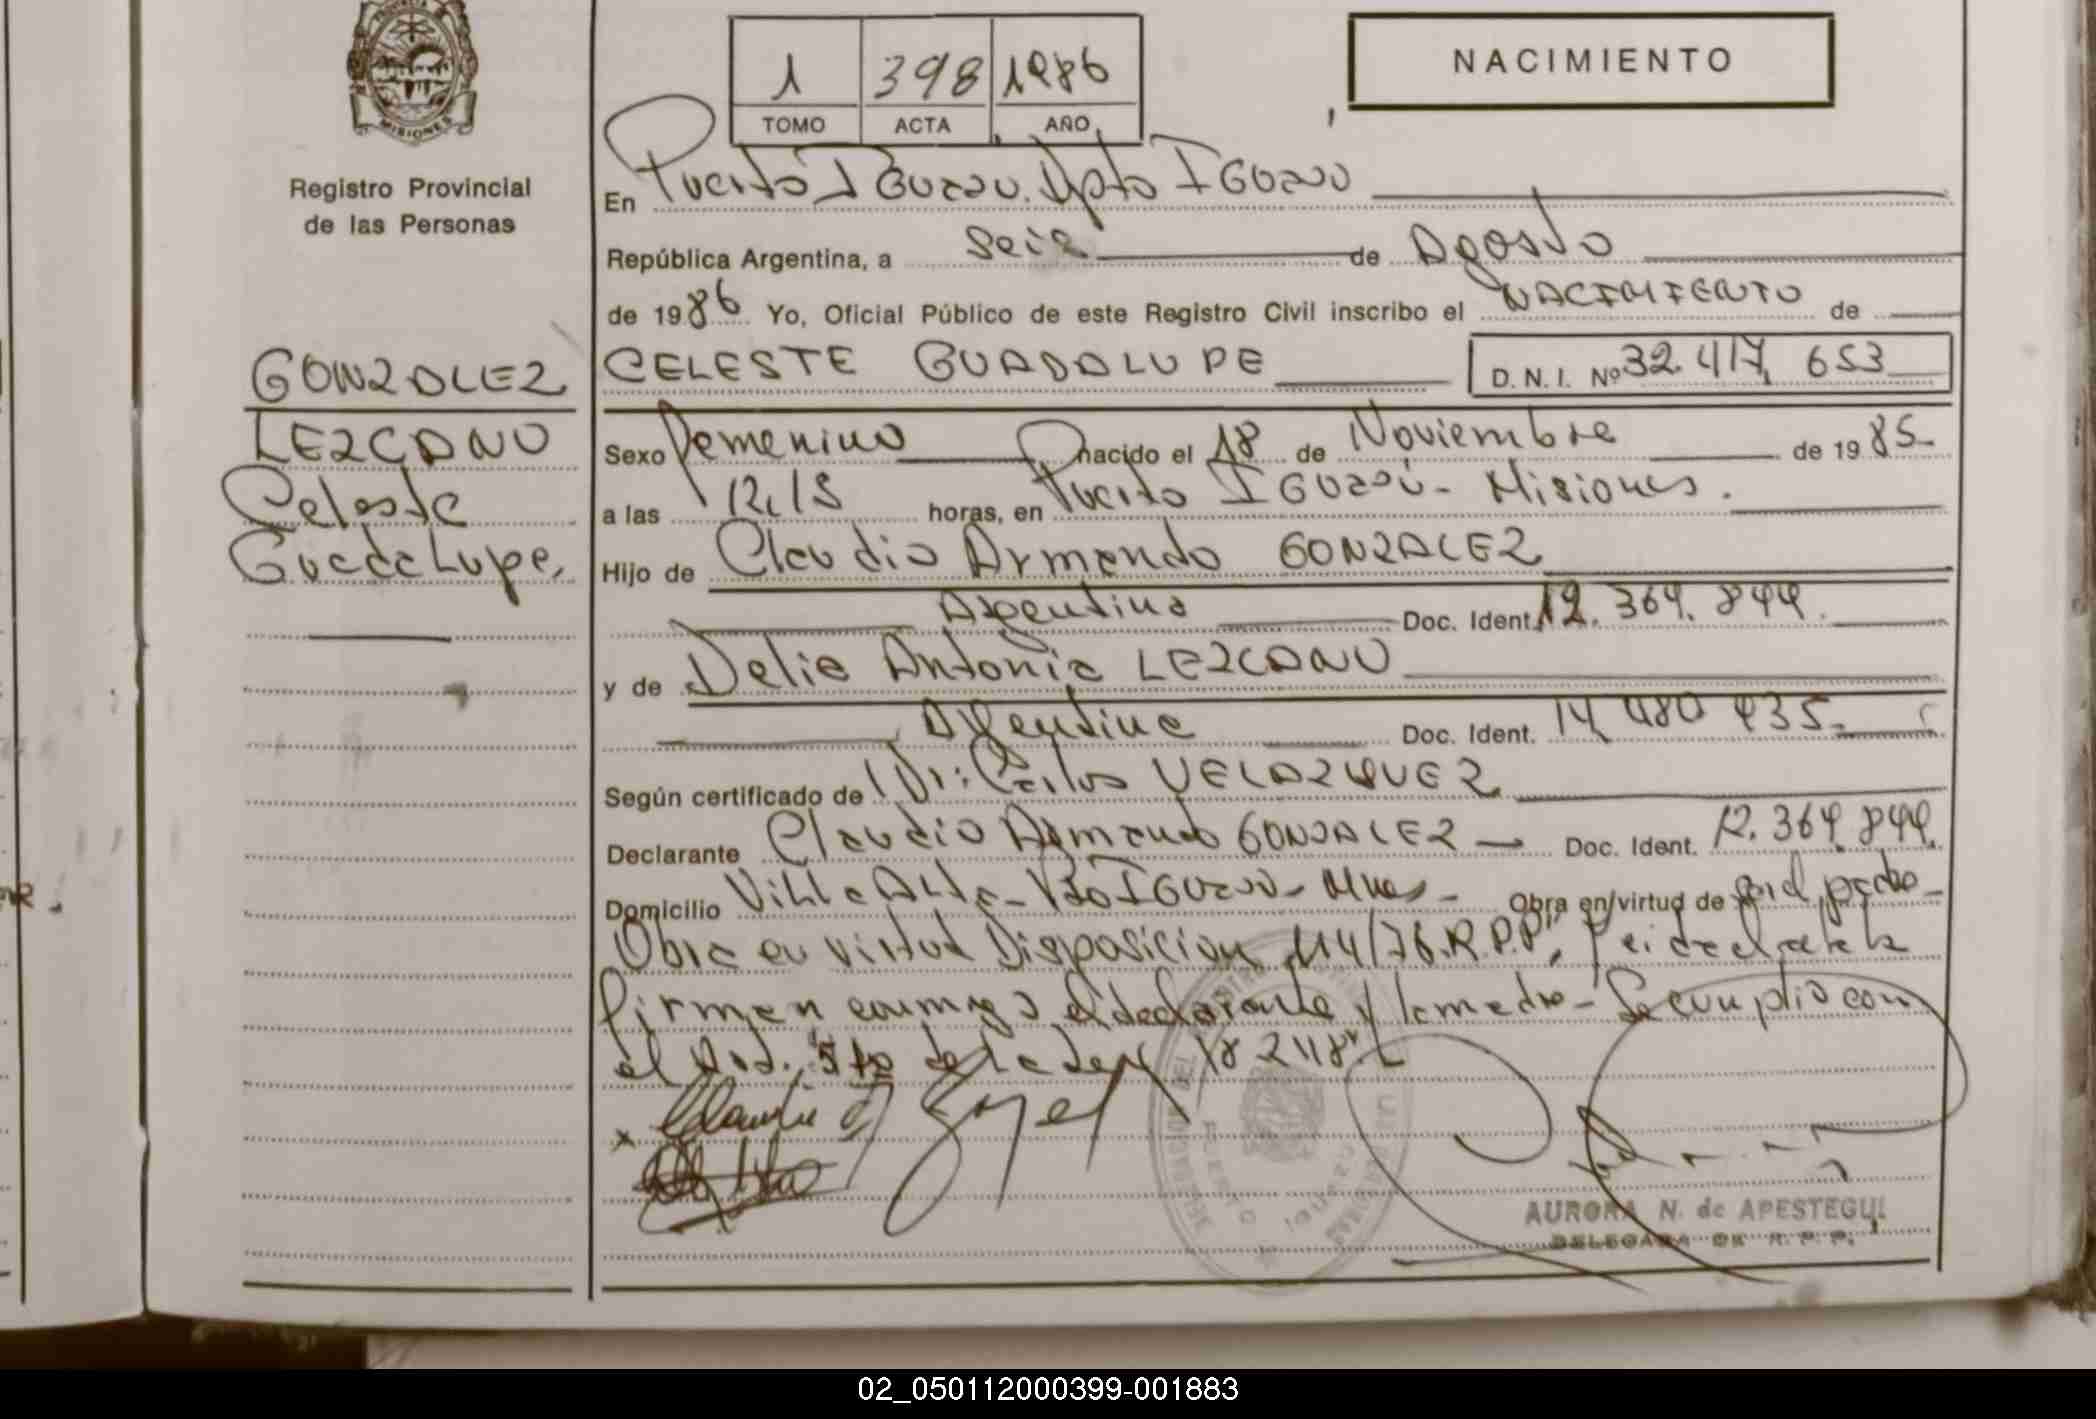 PROVINCIA DE
MISIONES
Registro Provincial
de las Personas
1 398 1986
TOMO ACTA AÑO
NACIMIENTO
En Puerto Iguazú. Dpto Iguazú
República Argentina, a seis de Agosto
de 1986 Yo, Oficial Público de este Registro Civil inscribo el NACIMIENTO de
CELESTE GUADALUPE D. N. I. Nº 32.417.653
GONZALEZ
LEZCANO
Celeste
Guadalupe.
Sexo Femenino nacido el 18 de Noviembre de 1985
a las 12,15 horas, en Puerto Iguazú - Misiones.
Hijo de Claudio Armando GONZALEZ
Argentina Doc. Ident. 12.364.844.
y de Delia Antonia LEZCANO
Argentina Doc. Ident. 14 480 435
Según certificado de Dr: Carlos VELAZQUEZ
Declarante Claudio Armando GONZALEZ Doc. Ident. 12.364.844.
Domicilio Villa Alta - Pto Iguazú - Mnes - Obra en/virtud de ser el padre -
Obra en virtud Disposicion 114/76.R.P.P", leida el acta la
firman conmigo el declarante y la madre - Se cumplio con
el Art. 5to de la Ley 18248"
AURORA N. de APESTEGUI
DELEGADA DE R. P. P.
02_050112000399-001883